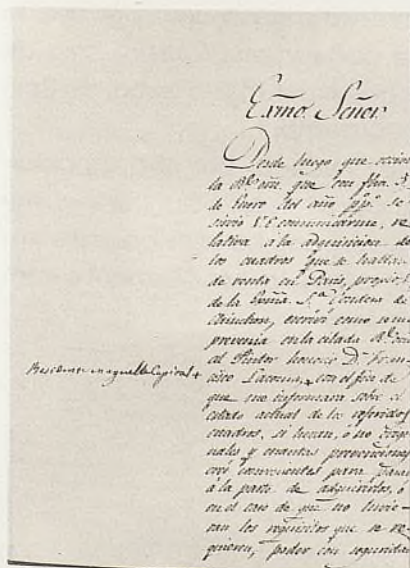 Exmo. Señor
Desde luego que recibí
la Rl. orn. que con fha. 3
de Enero del año pp.º se
sirvió V.E. comunicarme, re
lativa a la adquisicion de
los cuadros que se hallan
de venta en Paris, propios
de la Exma. S.ª Condesa de
Chinchon, escriví como se me
prevenia en la citada Rl.
al Pintor honorº Dn. Fran
cisco Lacoma, + con el fin de
Residente en aquella Capital +
que me informara sobre el
estado actual de los referidos
cuadros, si heran, ó no origi
nales y cuantas prevenciones
creyé convenientes para
á la parte de adquirirlos, ó
en el caso de que no tuvie-
ran los requisitos que se re
quieren, poder con seguridad